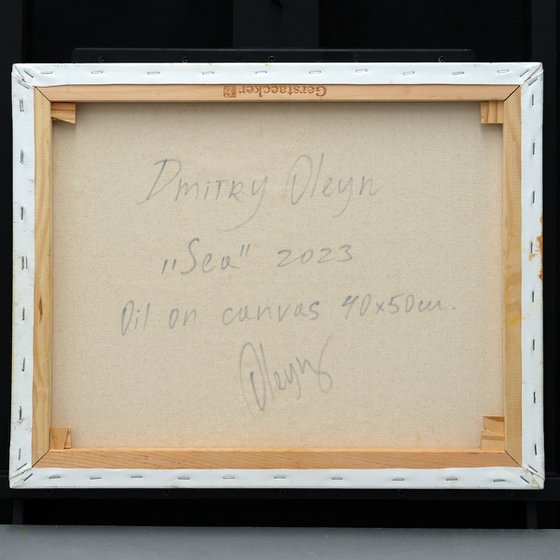 Gerstaecker
Dmitry Oleyn
„Sea" 2023
Oil on canvas 40x50cm.
Oleyn